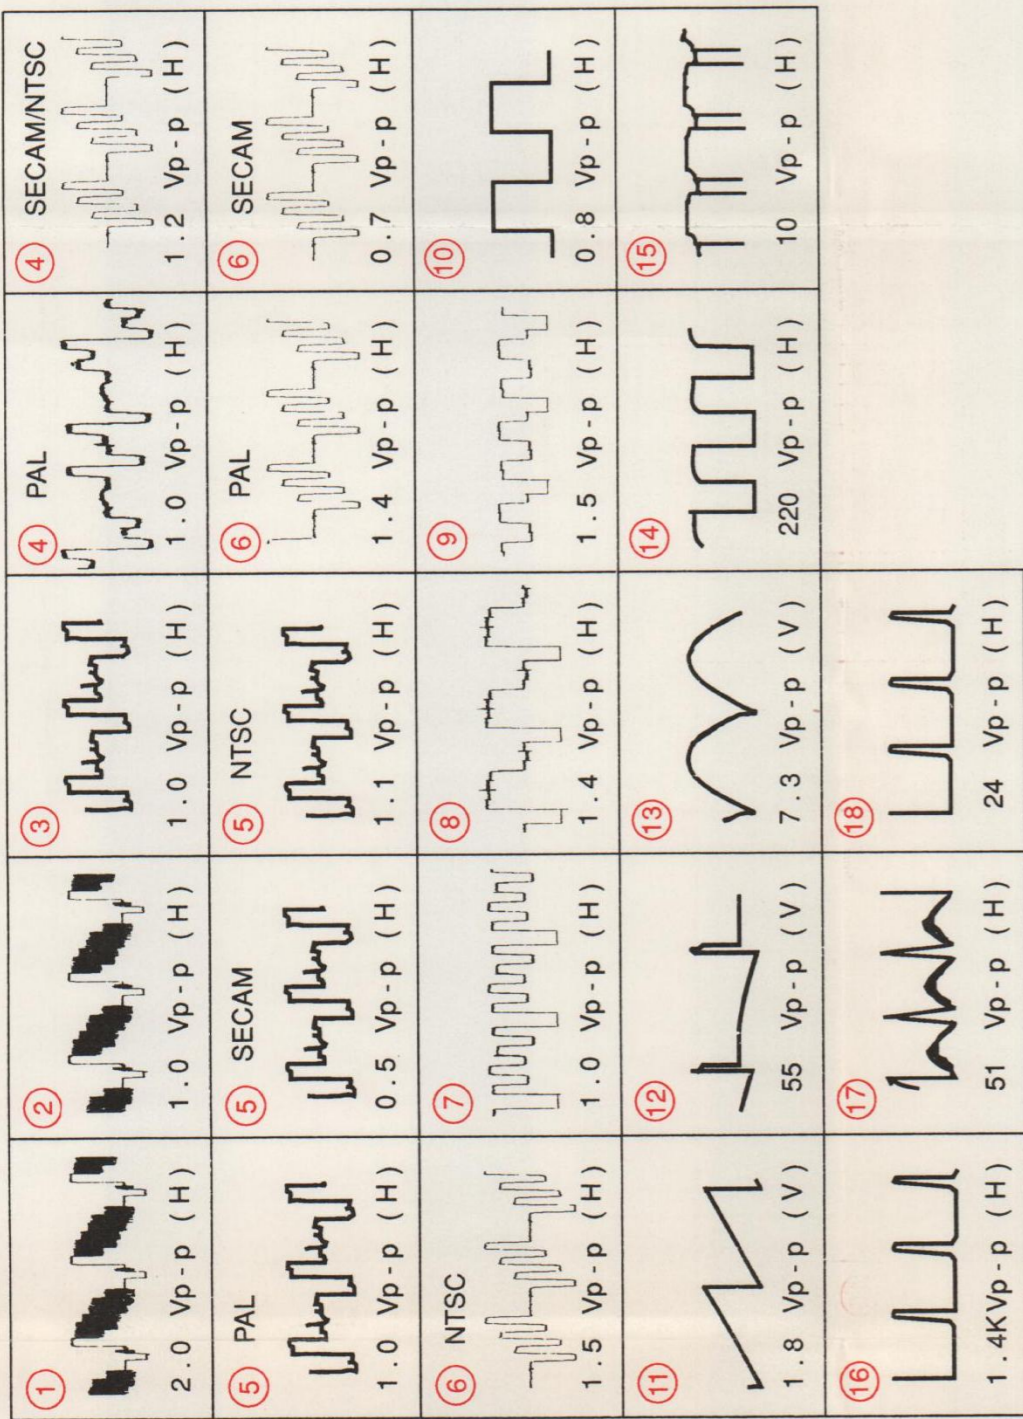 ① 
2.0 Vp-p (H)
②
1.0 Vp-p (H)
③
1.0 Vp-p (H)
④ PAL
1.0 Vp-p (H)
④ SECAM/NTSC
1.2 Vp-p (H)
⑤ PAL
1.0 Vp-p (H)
⑤ SECAM
0.5 Vp-p (H)
⑤ NTSC
1.1 Vp-p (H)
⑥ PAL
1.4 Vp-p (H)
⑥ SECAM
0.7 Vp-p (H)
⑥ NTSC
1.5 Vp-p (H)
⑦
1.0 Vp-p (H)
⑧
1.4 Vp-p (H)
⑨
1.5 Vp-p (H)
⑩
0.8 Vp-p (H)
⑪
1.8 Vp-p (V)
⑫
55 Vp-p (V)
⑬
7.3 Vp-p (V)
⑭
220 Vp-p (H)
⑮
10 Vp-p (H)
⑯
1.4KVp-p (H)
⑰
51 Vp-p (H)
⑱
24 Vp-p (H)